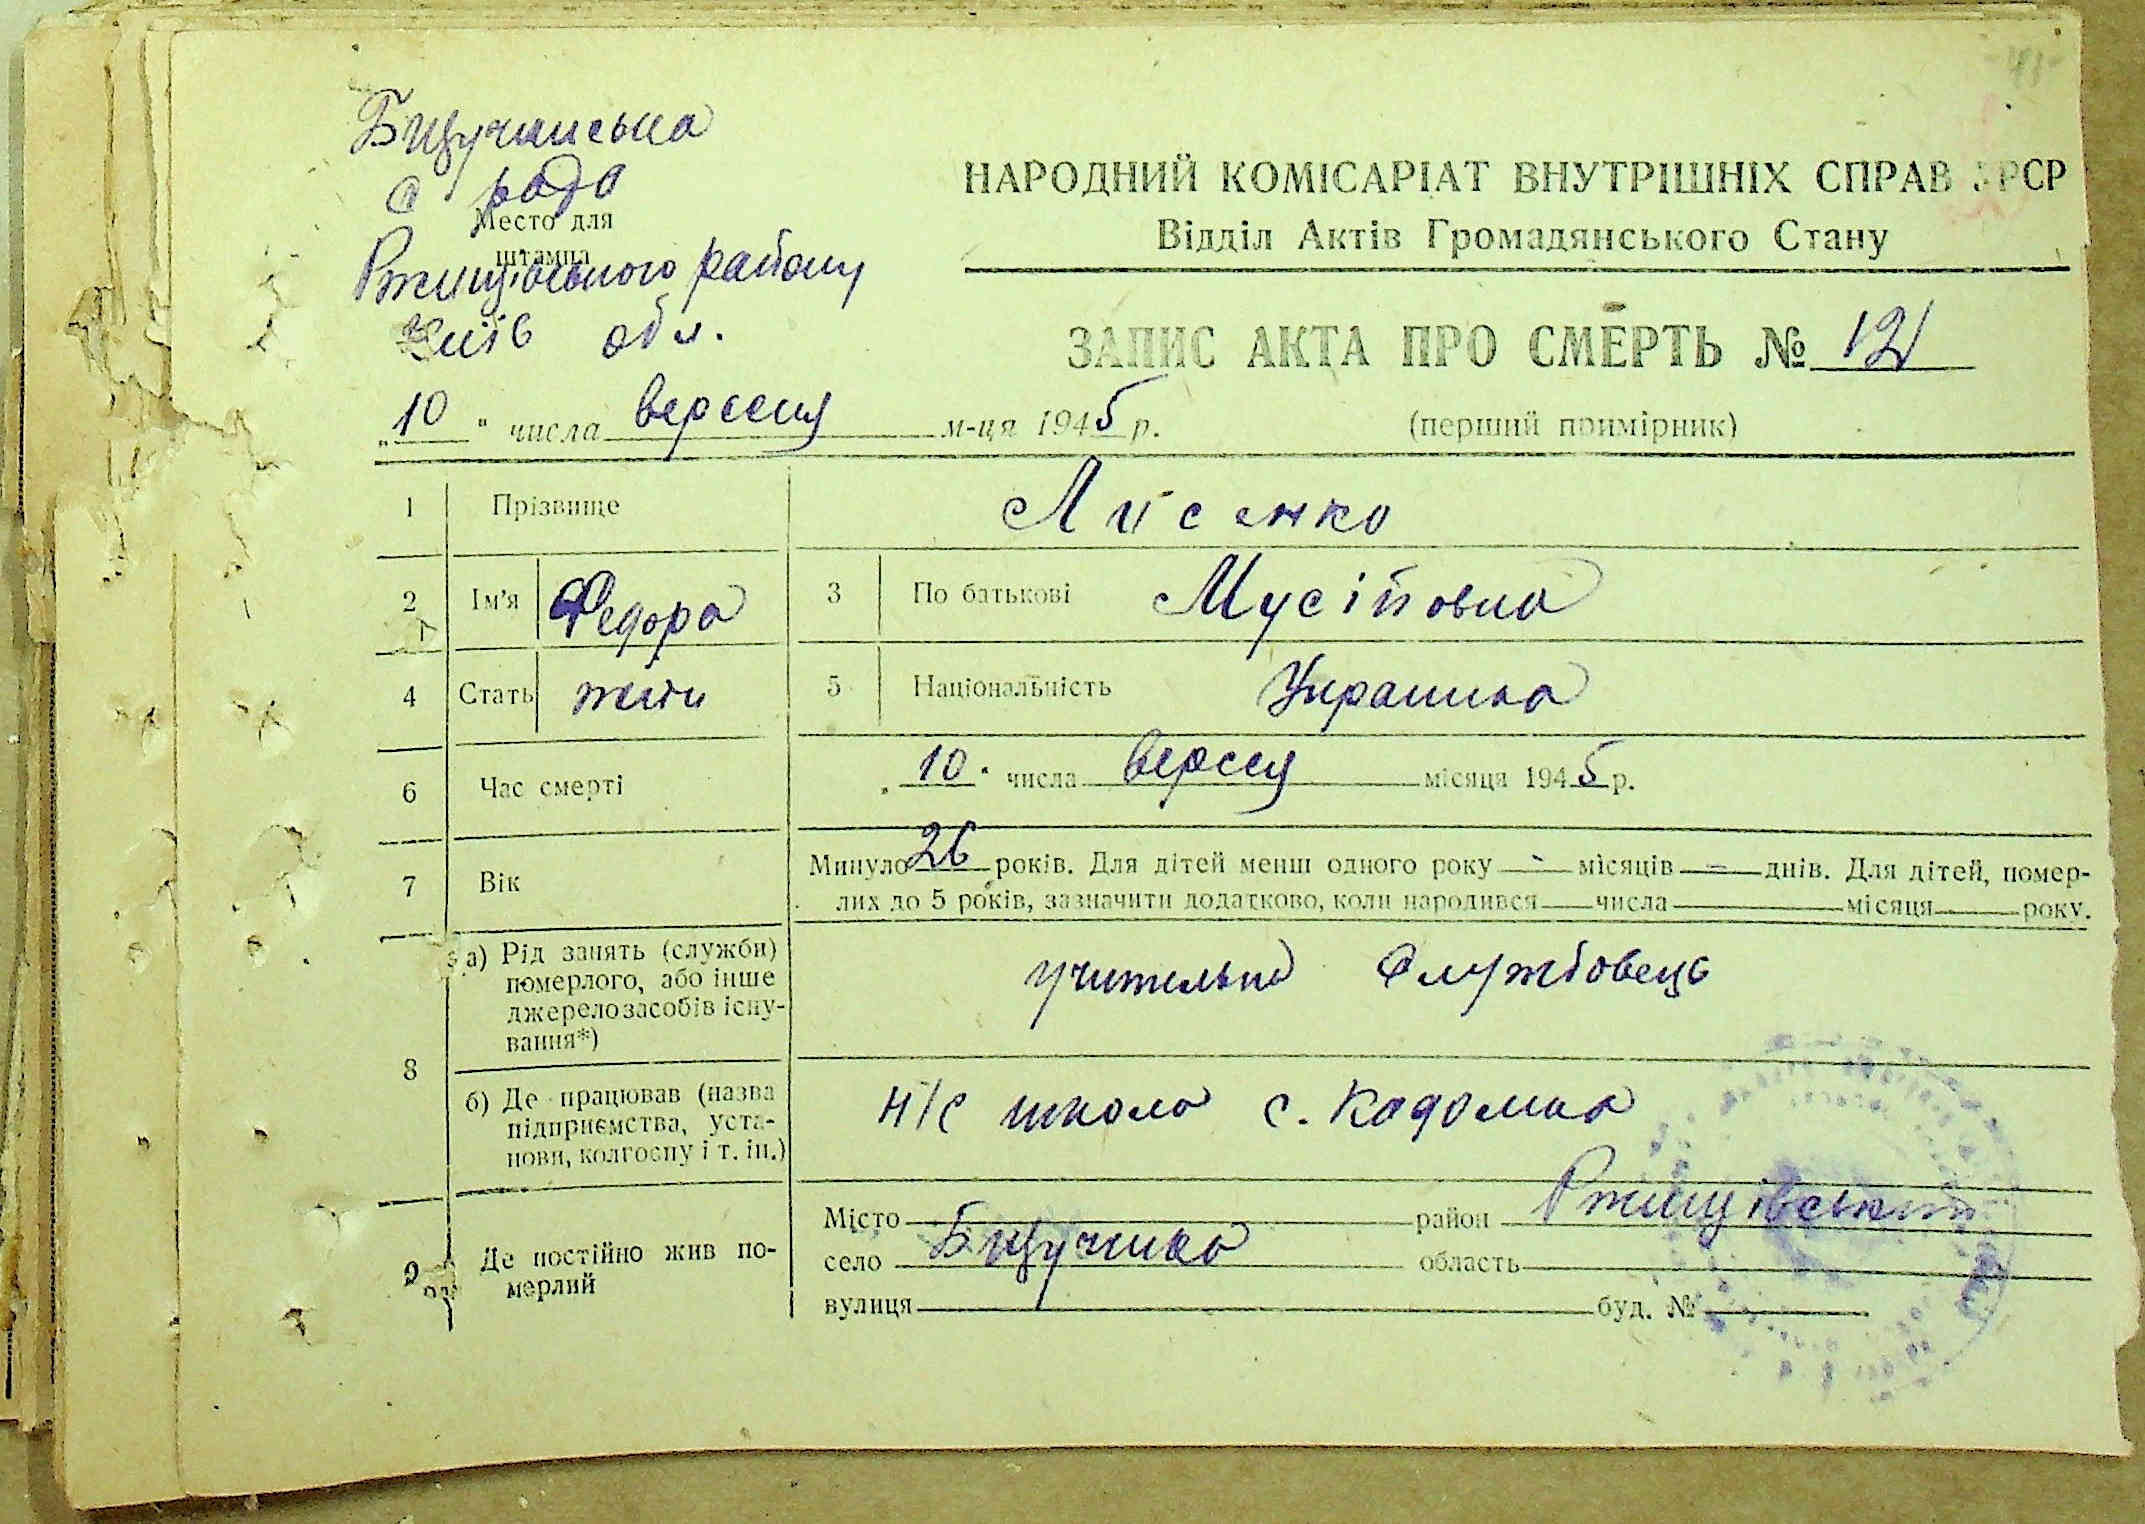 Бицучанська
с рада
Место для
штампа
Ржищівського району
Київ обл.
НАРОДНИЙ КОМІСАРІАТ ВНУТРІШНІХ СПРАВ УРСР
Відділ Актів Громадянського Стану
ЗАПИС АКТА ПРО СМЕРТЬ № 12
„10“ числа вересня м-ця 1945 р. (перший примірник)
1 Прізвище Лисенко
2 Ім'я Федора 3 По батькові Мусійовна
4 Стать жіноч 5 Національність Українка
6 Час смерті „10“ числа вересня місяця 1945 р.
7 Вік Минуло 26 років. Для дітей менш одного року - місяців - днів. Для дітей, помер-
лих до 5 років, зазначити додатково, коли народився числа місяця року.
8 а) Рід занять (служби)
померлого, або інше
джерело засобів існу-
вання*)
учителька Службовець
б) Де працював (назва
підприємства, уста-
нови, колгоспу і т. ін.)
Н/С школа с. Кадомка
9 Де постійно жив по-
мерлий
Місто район Ржищівський
село Бицучика область
вулиця буд. №